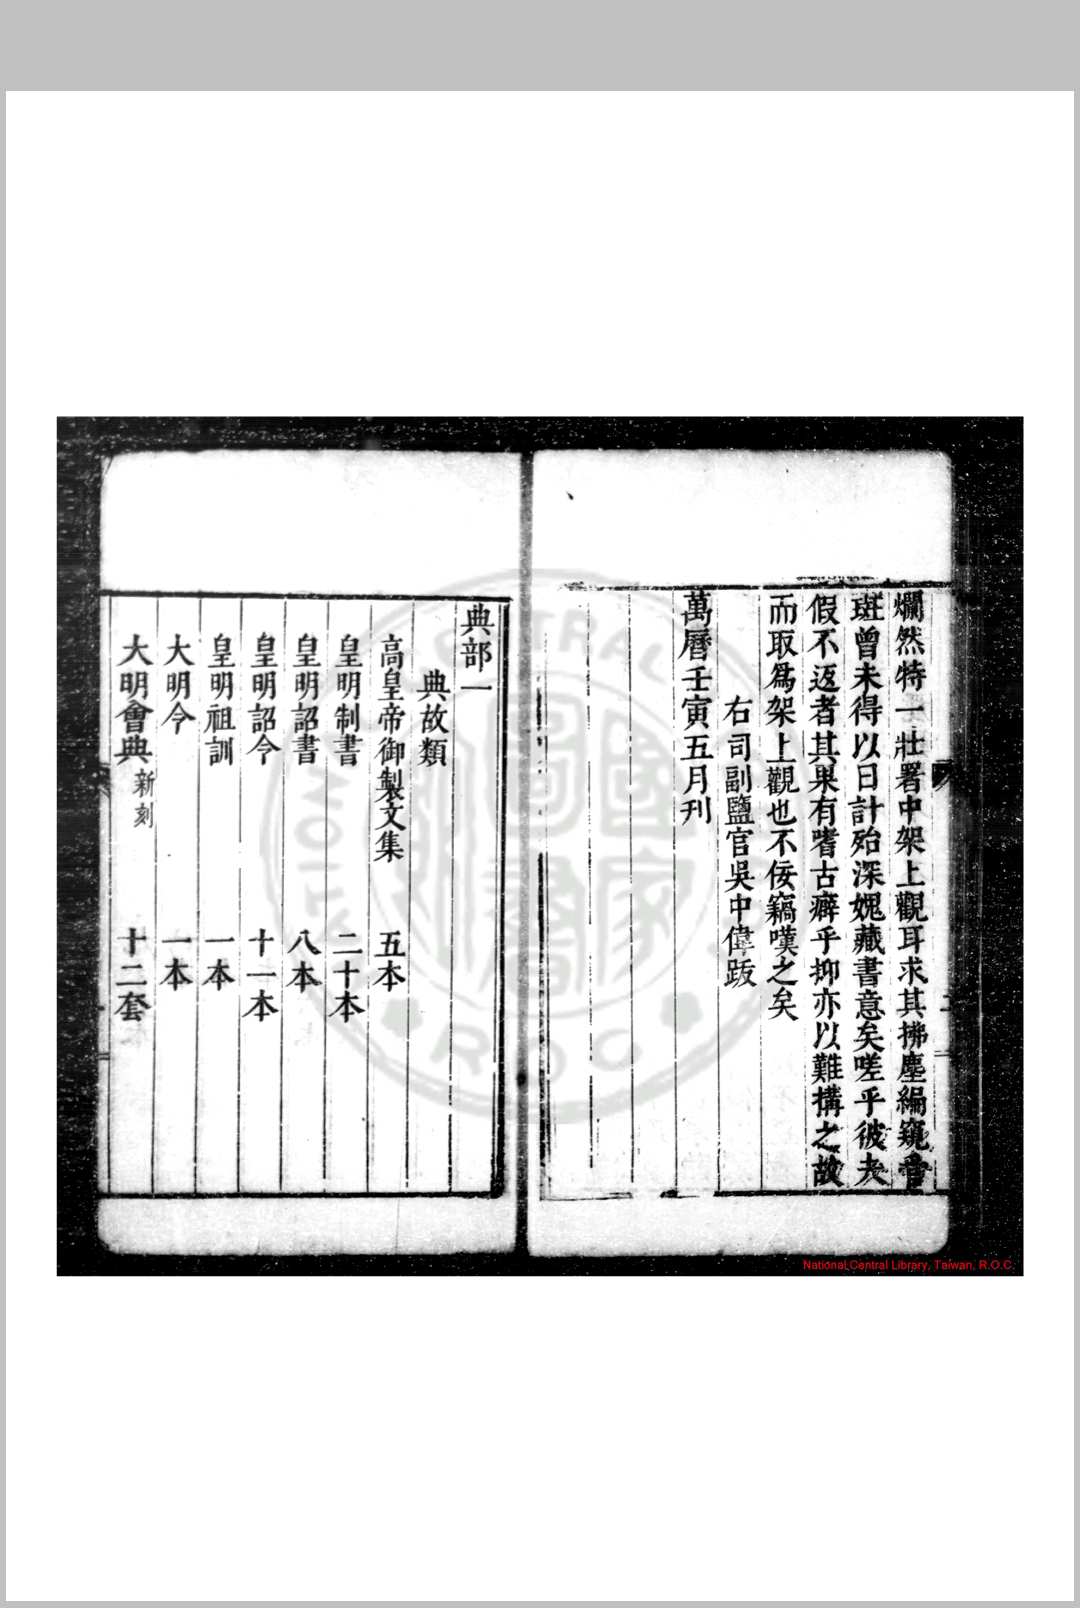 爛然特一壯署中架上觀耳求其拂塵編窺管
斑曾未得以日計殆深媿藏書意矣嗟乎彼夫
假不返者其果有嗜古癖乎抑亦以難搆之故
而取爲架上觀也不佞竊嘆之矣
右司副鹽官吳中偉跋
萬曆壬寅五月刊
典部一
典故類
高皇帝御製文集 五本
皇明制書 二十本
皇明詔書 八本
皇明詔令 十一本
皇明祖訓 一本
大明令 一本
大明會典 新刻 十二套
National Central Library, Taiwan, R.O.C.